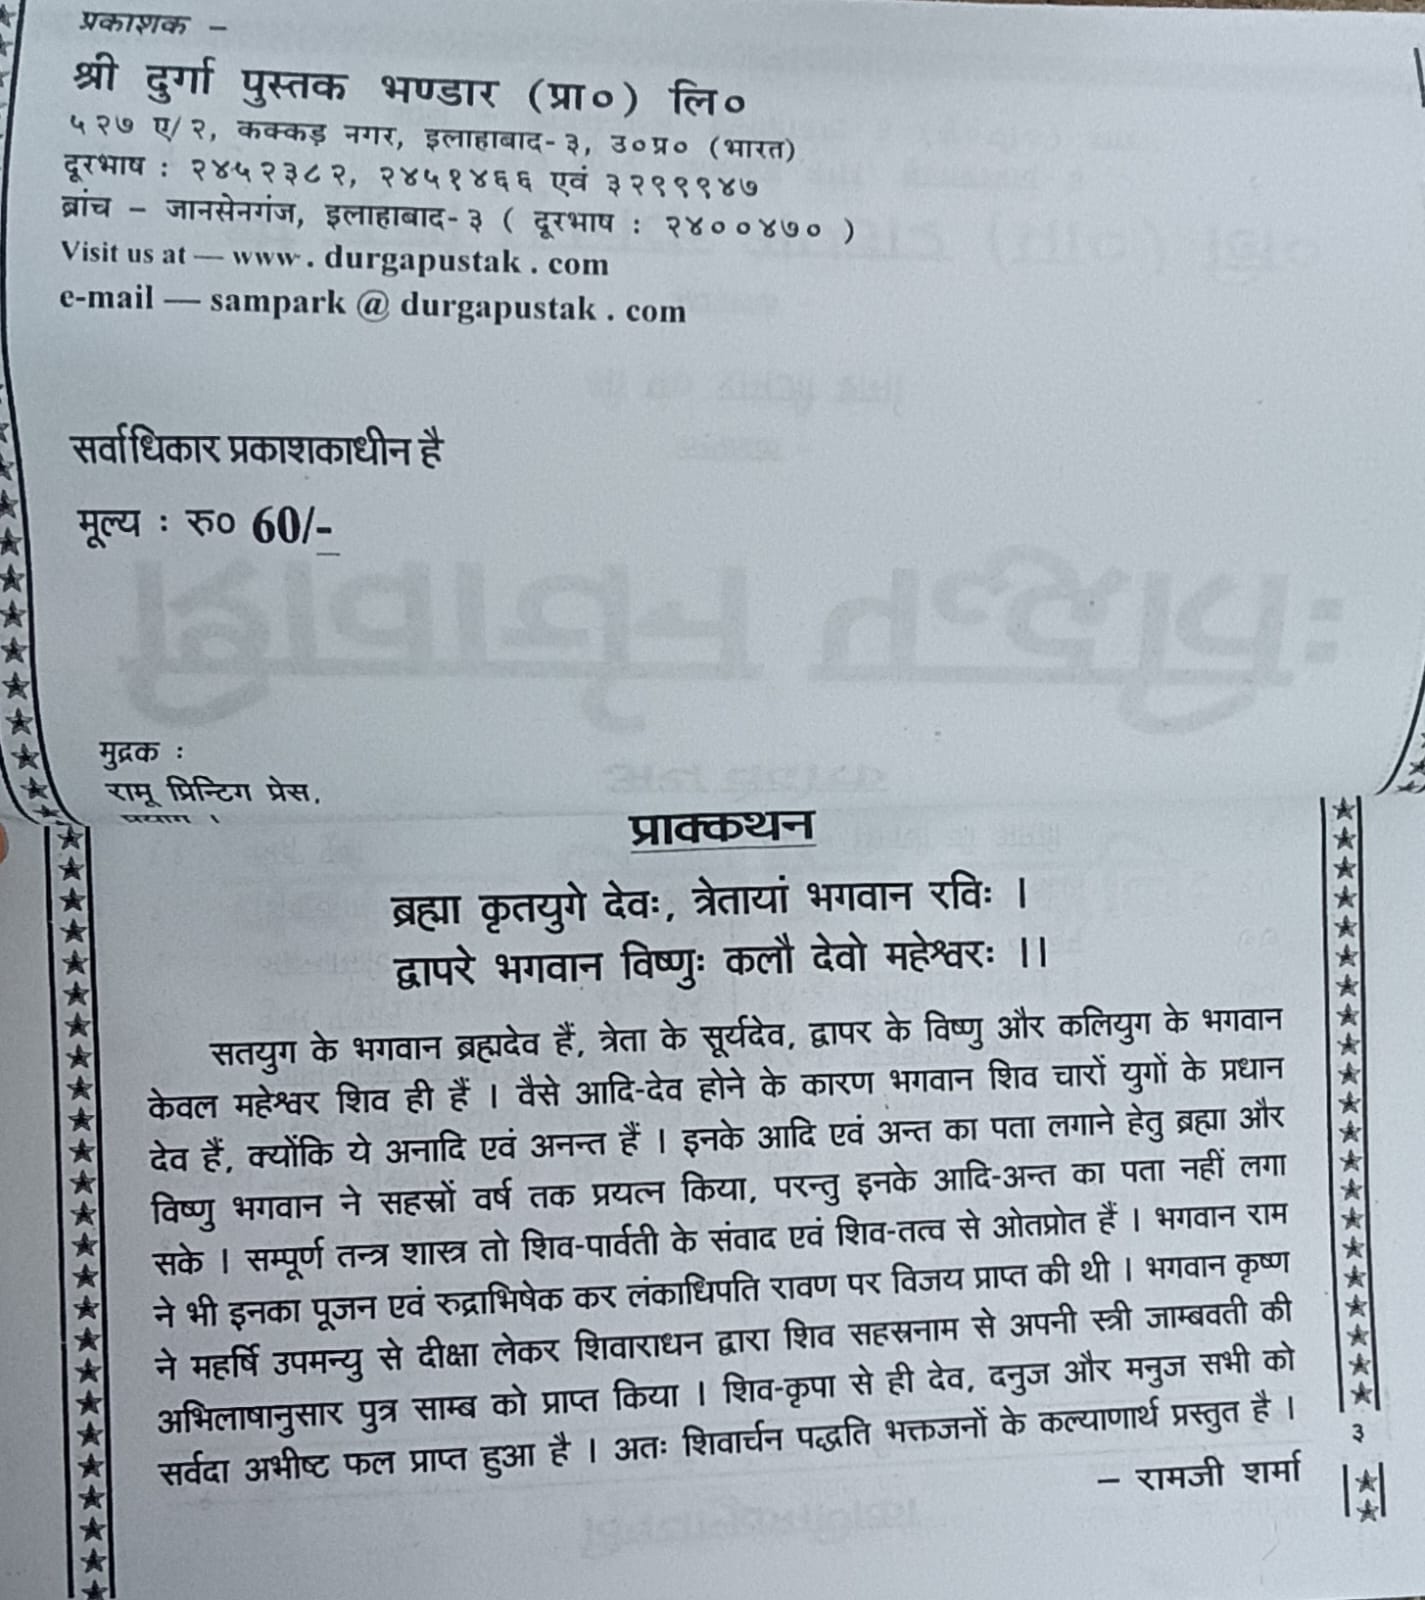 प्रकाशक –
श्री दुर्गा पुस्तक भण्डार (प्रा०) लि०
५२७ ए/२, कक्कड़ नगर, इलाहाबाद-३, उ०प्र० (भारत)
दूरभाष : २४५२३८२, २४५१४६६ एवं ३२९९९४७
ब्रांच – जानसेनगंज, इलाहाबाद-३ ( दूरभाष : २४००४७० )
Visit us at — www. durgapustak . com
e-mail — sampark @ durgapustak . com
सर्वाधिकार प्रकाशकाधीन है
मूल्य : रु० 60/-
मुद्रक :
रामू प्रिन्टिग प्रेस,
प्रयाग ।
प्राक्कथन
ब्रह्मा कृतयुगे देवः, त्रेतायां भगवान रविः ।
द्वापरे भगवान विष्णुः कलौ देवो महेश्वरः ।।
सतयुग के भगवान ब्रह्मदेव हैं, त्रेता के सूर्यदेव, द्वापर के विष्णु और कलियुग के भगवान
केवल महेश्वर शिव ही हैं । वैसे आदि-देव होने के कारण भगवान शिव चारों युगों के प्रधान
देव हैं, क्योंकि ये अनादि एवं अनन्त हैं । इनके आदि एवं अन्त का पता लगाने हेतु ब्रह्मा और
विष्णु भगवान ने सहस्रों वर्ष तक प्रयत्न किया, परन्तु इनके आदि-अन्त का पता नहीं लगा
सके । सम्पूर्ण तन्त्र शास्त्र तो शिव-पार्वती के संवाद एवं शिव-तत्व से ओतप्रोत हैं । भगवान राम
ने भी इनका पूजन एवं रुद्राभिषेक कर लंकाधिपति रावण पर विजय प्राप्त की थी । भगवान कृष्ण
ने महर्षि उपमन्यु से दीक्षा लेकर शिवाराधन द्वारा शिव सहस्रनाम से अपनी स्त्री जाम्बवती की
अभिलाषानुसार पुत्र साम्ब को प्राप्त किया । शिव-कृपा से ही देव, दनुज और मनुज सभी को
सर्वदा अभीष्ट फल प्राप्त हुआ है । अतः शिवार्चन पद्धति भक्तजनों के कल्याणार्थ प्रस्तुत है ।
– रामजी शर्मा
३